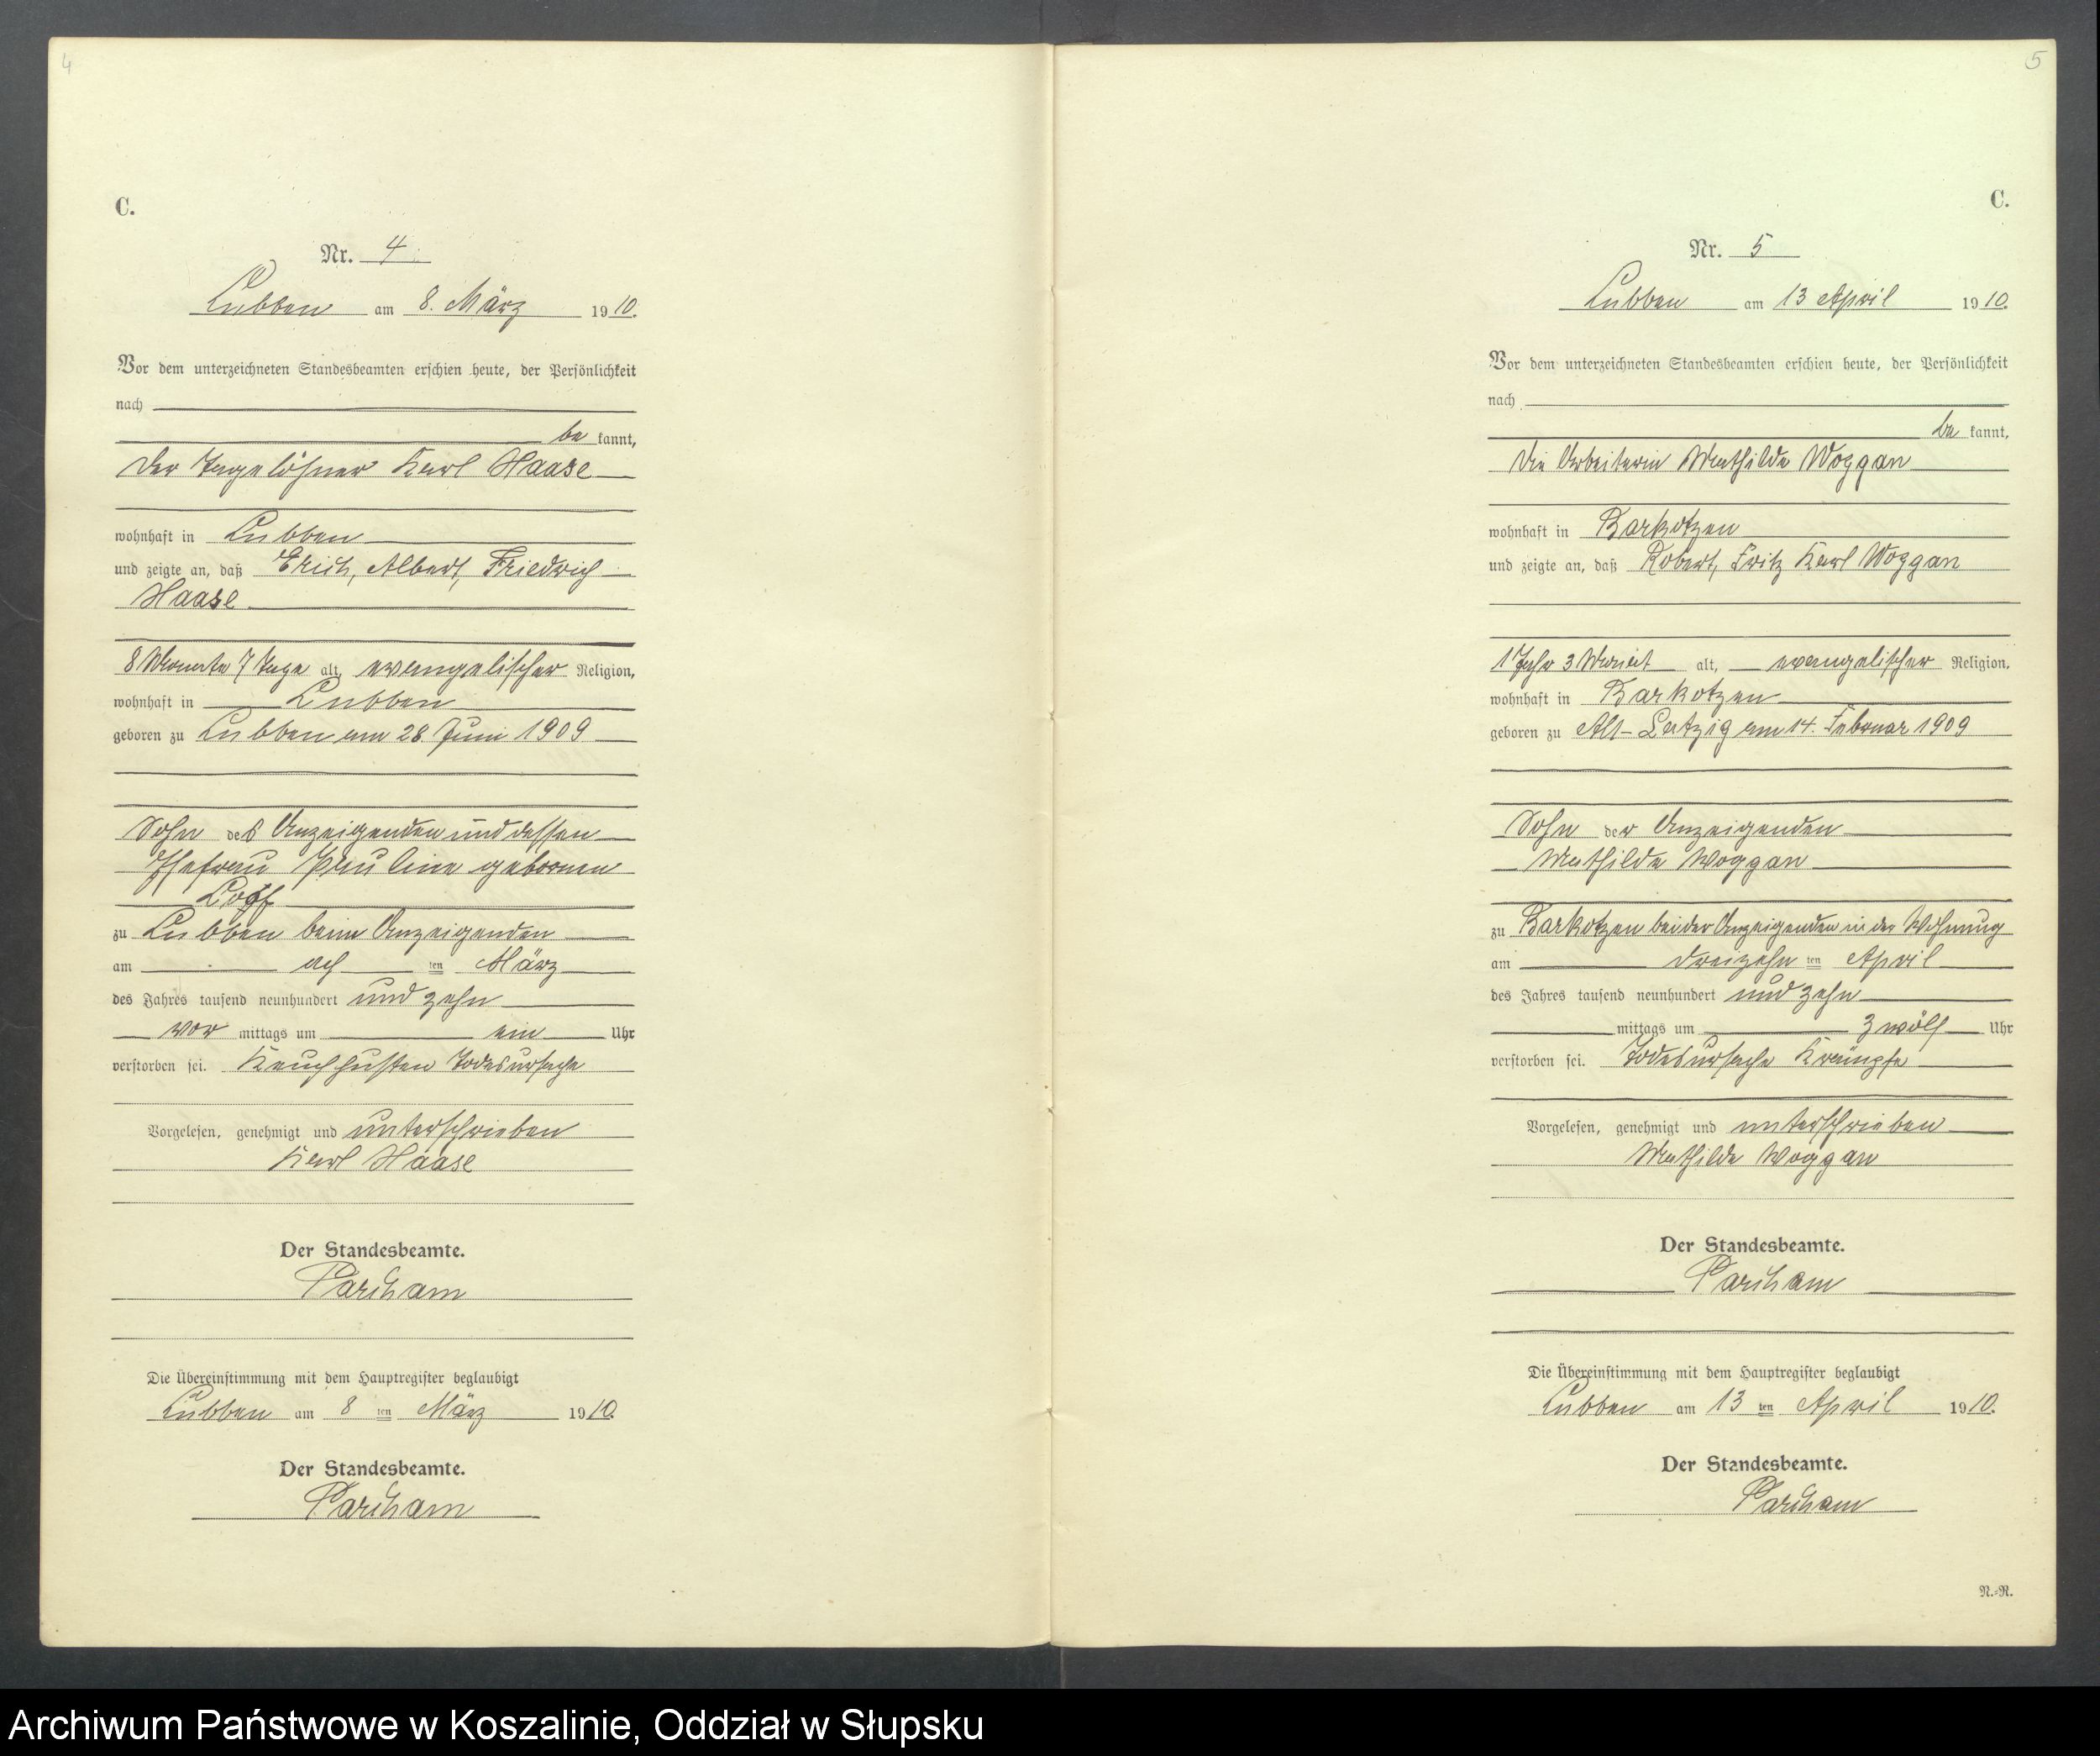 4
C.
Nr. 4
Lubben am 8. März 1910.
Vor dem unterzeichneten Standesbeamten erschien heute, der Persönlichkeit
nach
be kannt,
der Tagelöhner Karl Haase
wohnhaft in Lubben
und zeigte an, daß Erich, Albert, Friedrich
Haase
8 Monate 7 Tage alt, evangelischer Religion,
wohnhaft in Lubben
geboren zu Lubben am 28 Juni 1909
Sohn des Anzeigenden und dessen
Ehefrau Pauline gebornen
zu Lubben beim Anzeigenden
am ach ten März
des Jahres tausend neunhundert und zehn
vor mittags um ein Uhr
verstorben sei. Keuchhusten Todesursache
Vorgelesen, genehmigt und unterschrieben
Karl Haase
Der Standesbeamte.
Parcham
Die Übereinstimmung mit dem Hauptregister beglaubigt
Lubben am 8 ten März 1910.
Der Standesbeamte.
Parcham
5
C.
Nr. 5
Lubben am 13 April 1910.
Vor dem unterzeichneten Standesbeamten erschien heute, der Persönlichkeit
nach
be kannt,
die Arbeiterin Mathilde Woggan
wohnhaft in Barkotzen
und zeigte an, daß Robert, Fritz Karl Woggan
1 Jahr 3 Monat alt, evangelischer Religion,
wohnhaft in Barkotzen
geboren zu Alt-Latzig am 14. Februar 1909
Sohn der Anzeigenden
Mathilde Woggan
zu Barkotzen bei der Anzeigenden in der Wohnung
am dreizehn ten April
des Jahres tausend neunhundert und zehn
mittags um zwölf Uhr
verstorben sei. Todesursache Krämpfe
Vorgelesen, genehmigt und unterschrieben
Mathilde Woggan
Der Standesbeamte.
Parcham
Die Übereinstimmung mit dem Hauptregister beglaubigt
Lubben am 13 ten April 1910.
Der Standesbeamte.
Parcham
N.-R.
Archiwum Państwowe w Koszalinie, Oddział w Słupsku